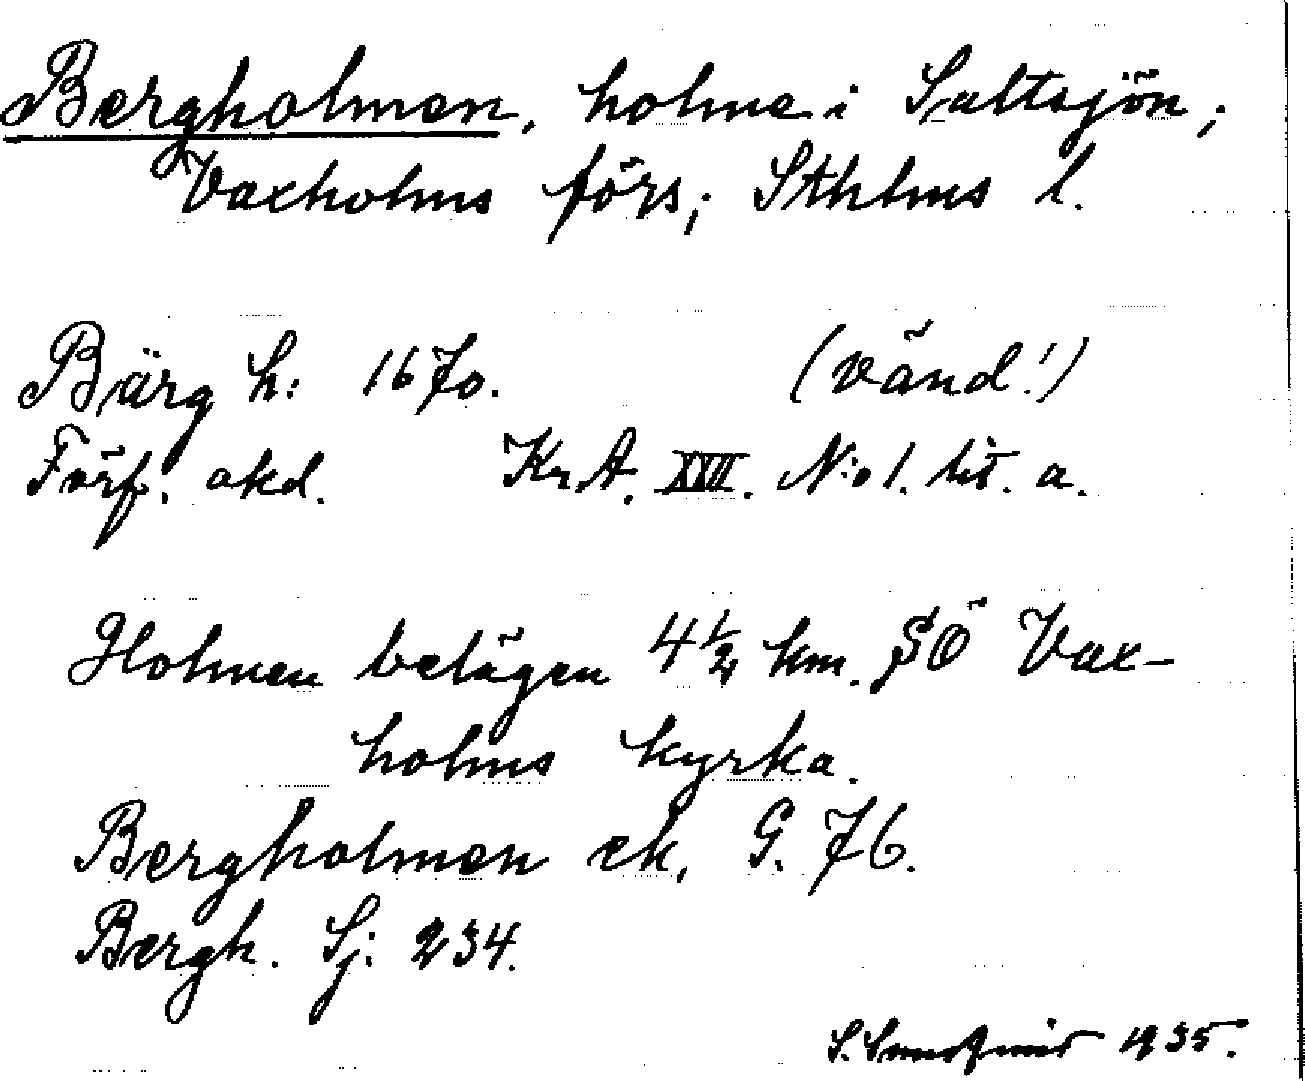 Bergholmen, holme i Saltsjön;
Vaxholms förs; Sthlms l.
Bärg h: 1670. (vänd!)
Förf. okd. Kr. A. XVII. N:o 1. lit. a.
Holmen belägen 4 1/2 km. SÖ Vax-
holms kyrka.
Bergholmen ek. G. 76.
Bergh. Sj: 234.
S. 1935.